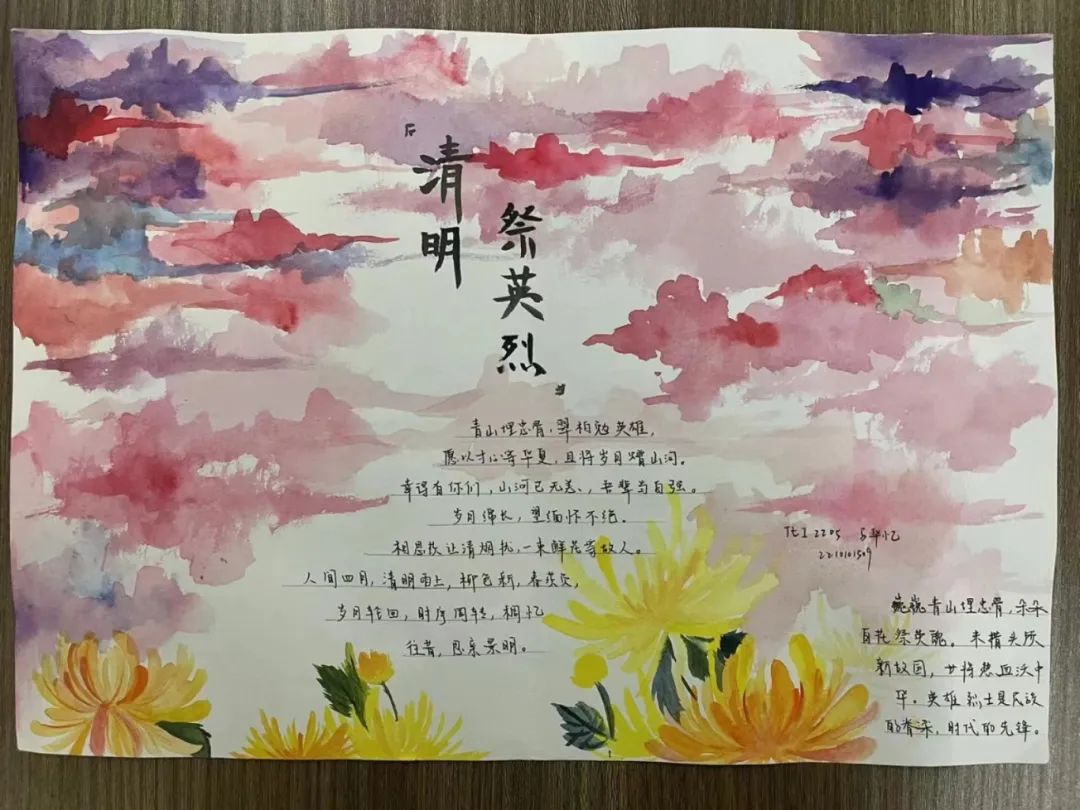 『清明
祭英烈』
青山埋忠骨，翠柏慰英雄，
愿以寸心寄华夏，且将岁月赠山河。
幸得有你们，山河已无恙，吾辈当自强。
岁月绵长，望缅怀不绝。
相思故让清烟扰，一束鲜花寄故人。
人间四月，清明雨上，柳色新，春
岁月轮回，时序周转，
往昔，风亲景明。
化工2205
2210101509
巍巍青山埋忠骨，朵朵
百花祭英魂。
新故国，甘将热血沃中
华。英雄烈士是民族
的脊梁，时代的先锋。